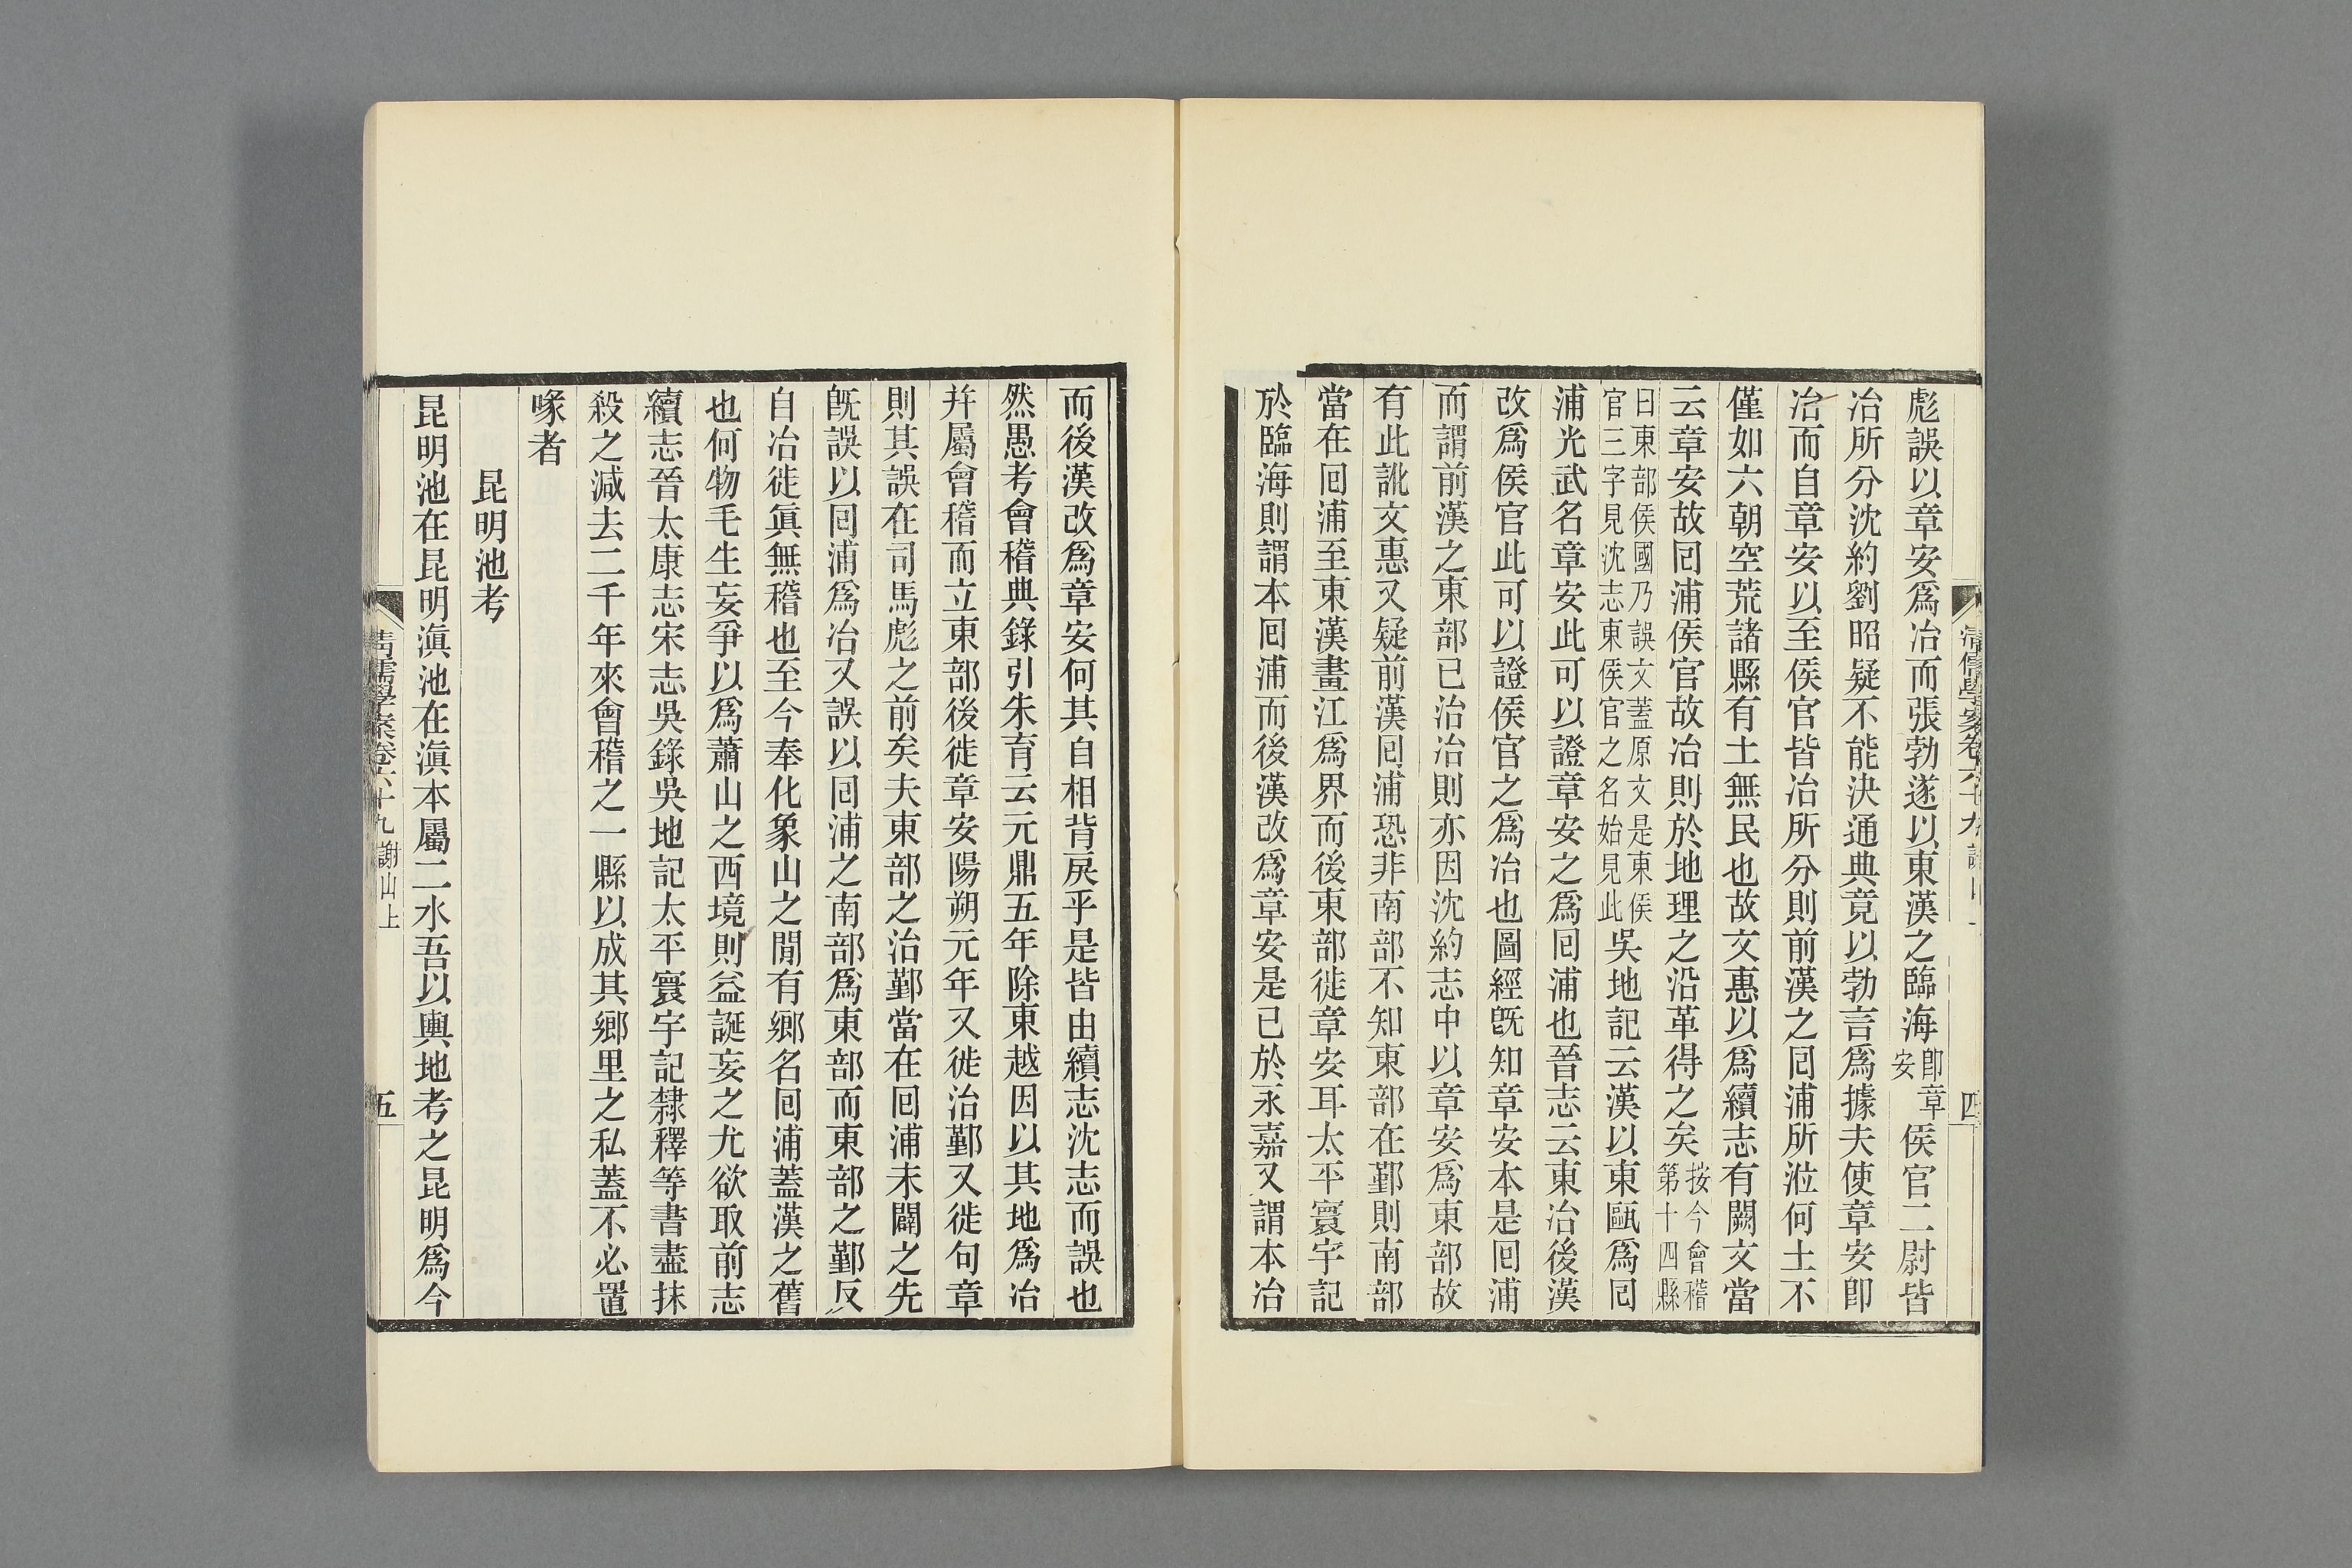 彪誤以章安爲冶而張勃遂以東漢之臨海卽章安侯官二尉皆
冶所分沈約劉昭疑不能決通典竟以勃言爲據夫使章安卽
冶而自章安以至侯官皆冶所分則前漢之囘浦所涖何土不
僅如六朝空荒諸縣有土無民也故文惠以爲續志有闕文當
云章安故囘浦侯官故冶則於地理之沿革得之矣按今會稽第十四縣
曰東部侯國乃誤文蓋原文是東侯官三字見沈志東侯官之名始見此吳地記云漢以東甌爲囘
浦光武名章安此可以證章安之爲囘浦也晉志云東冶後漢
改爲侯官此可以證侯官之爲冶也圖經旣知章安本是囘浦
而謂前漢之東部已治冶則亦因沈約志中以章安爲東部故
有此訛文惠又疑前漢囘浦恐非南部不知東部在鄞則南部
當在囘浦至東漢畫江爲界而後東部徙章安耳太平寰宇記
於臨海則謂本囘浦而後漢改爲章安是已於永嘉又謂本冶
清儒學案卷六十九
四
而後漢改爲章安何其自相背戾乎是皆由續志沈志而誤也
然愚考會稽典錄引朱育云元鼎五年除東越因以其地爲冶
幷屬會稽而立東部後徙章安陽朔元年又徙治鄞又徙句章
則其誤在司馬彪之前矣夫東部之治鄞當在囘浦未闢之先
旣誤以囘浦爲冶又誤以囘浦之南部爲東部而東部之鄞反
自冶徙眞無稽也至今奉化象山之閒有鄉名囘浦蓋漢之舊
也何物毛生妄爭以爲蕭山之西境則益誕妄之尤欲取前志
續志晉太康志宋志吳錄吳地記太平寰宇記隸釋等書盡抹
殺之減去二千年來會稽之一縣以成其鄉里之私蓋不必置
喙者
昆明池考
昆明池在昆明滇池在滇本屬二水吾以輿地考之昆明爲今
清儒學案卷六十九 謝山上
五